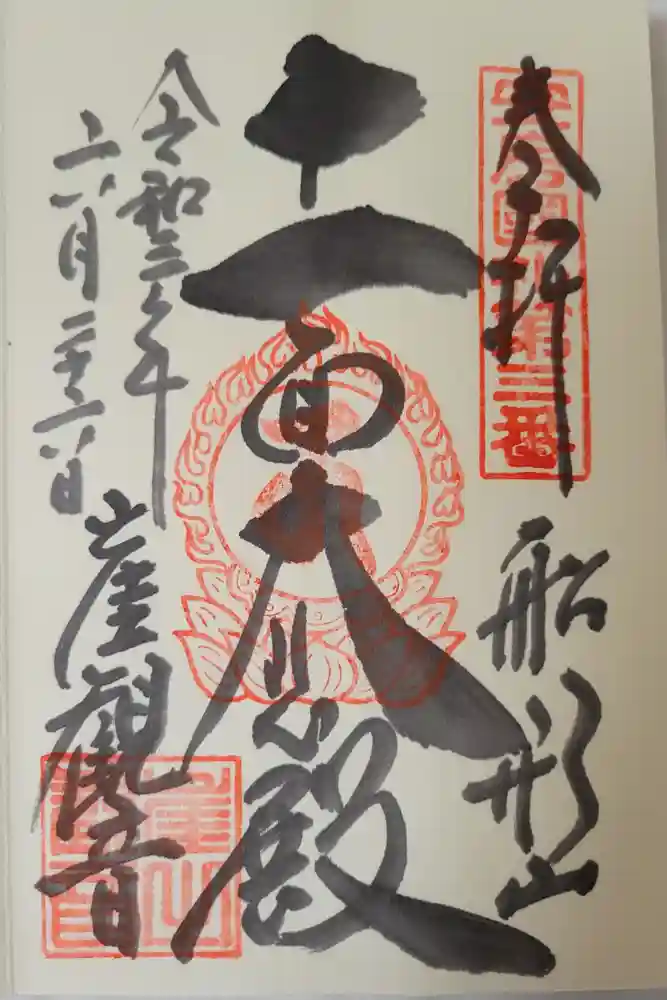 奉拝
安房國札第三番
船形山
十一面大悲殿
令和三年
六月二十六日
崖觀音